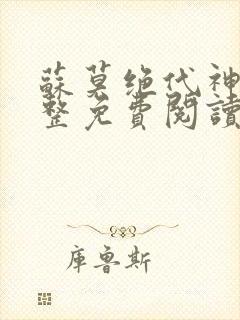 蘇莫绝代神
整免費閱讀
庫魯斯